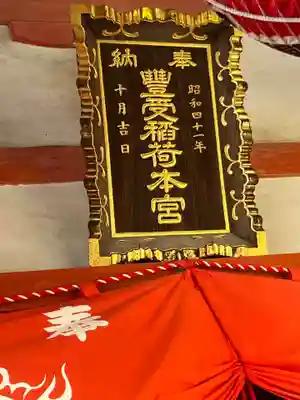 奉納
昭和四十一年
豐受稲荷本宮
十月吉日
奉